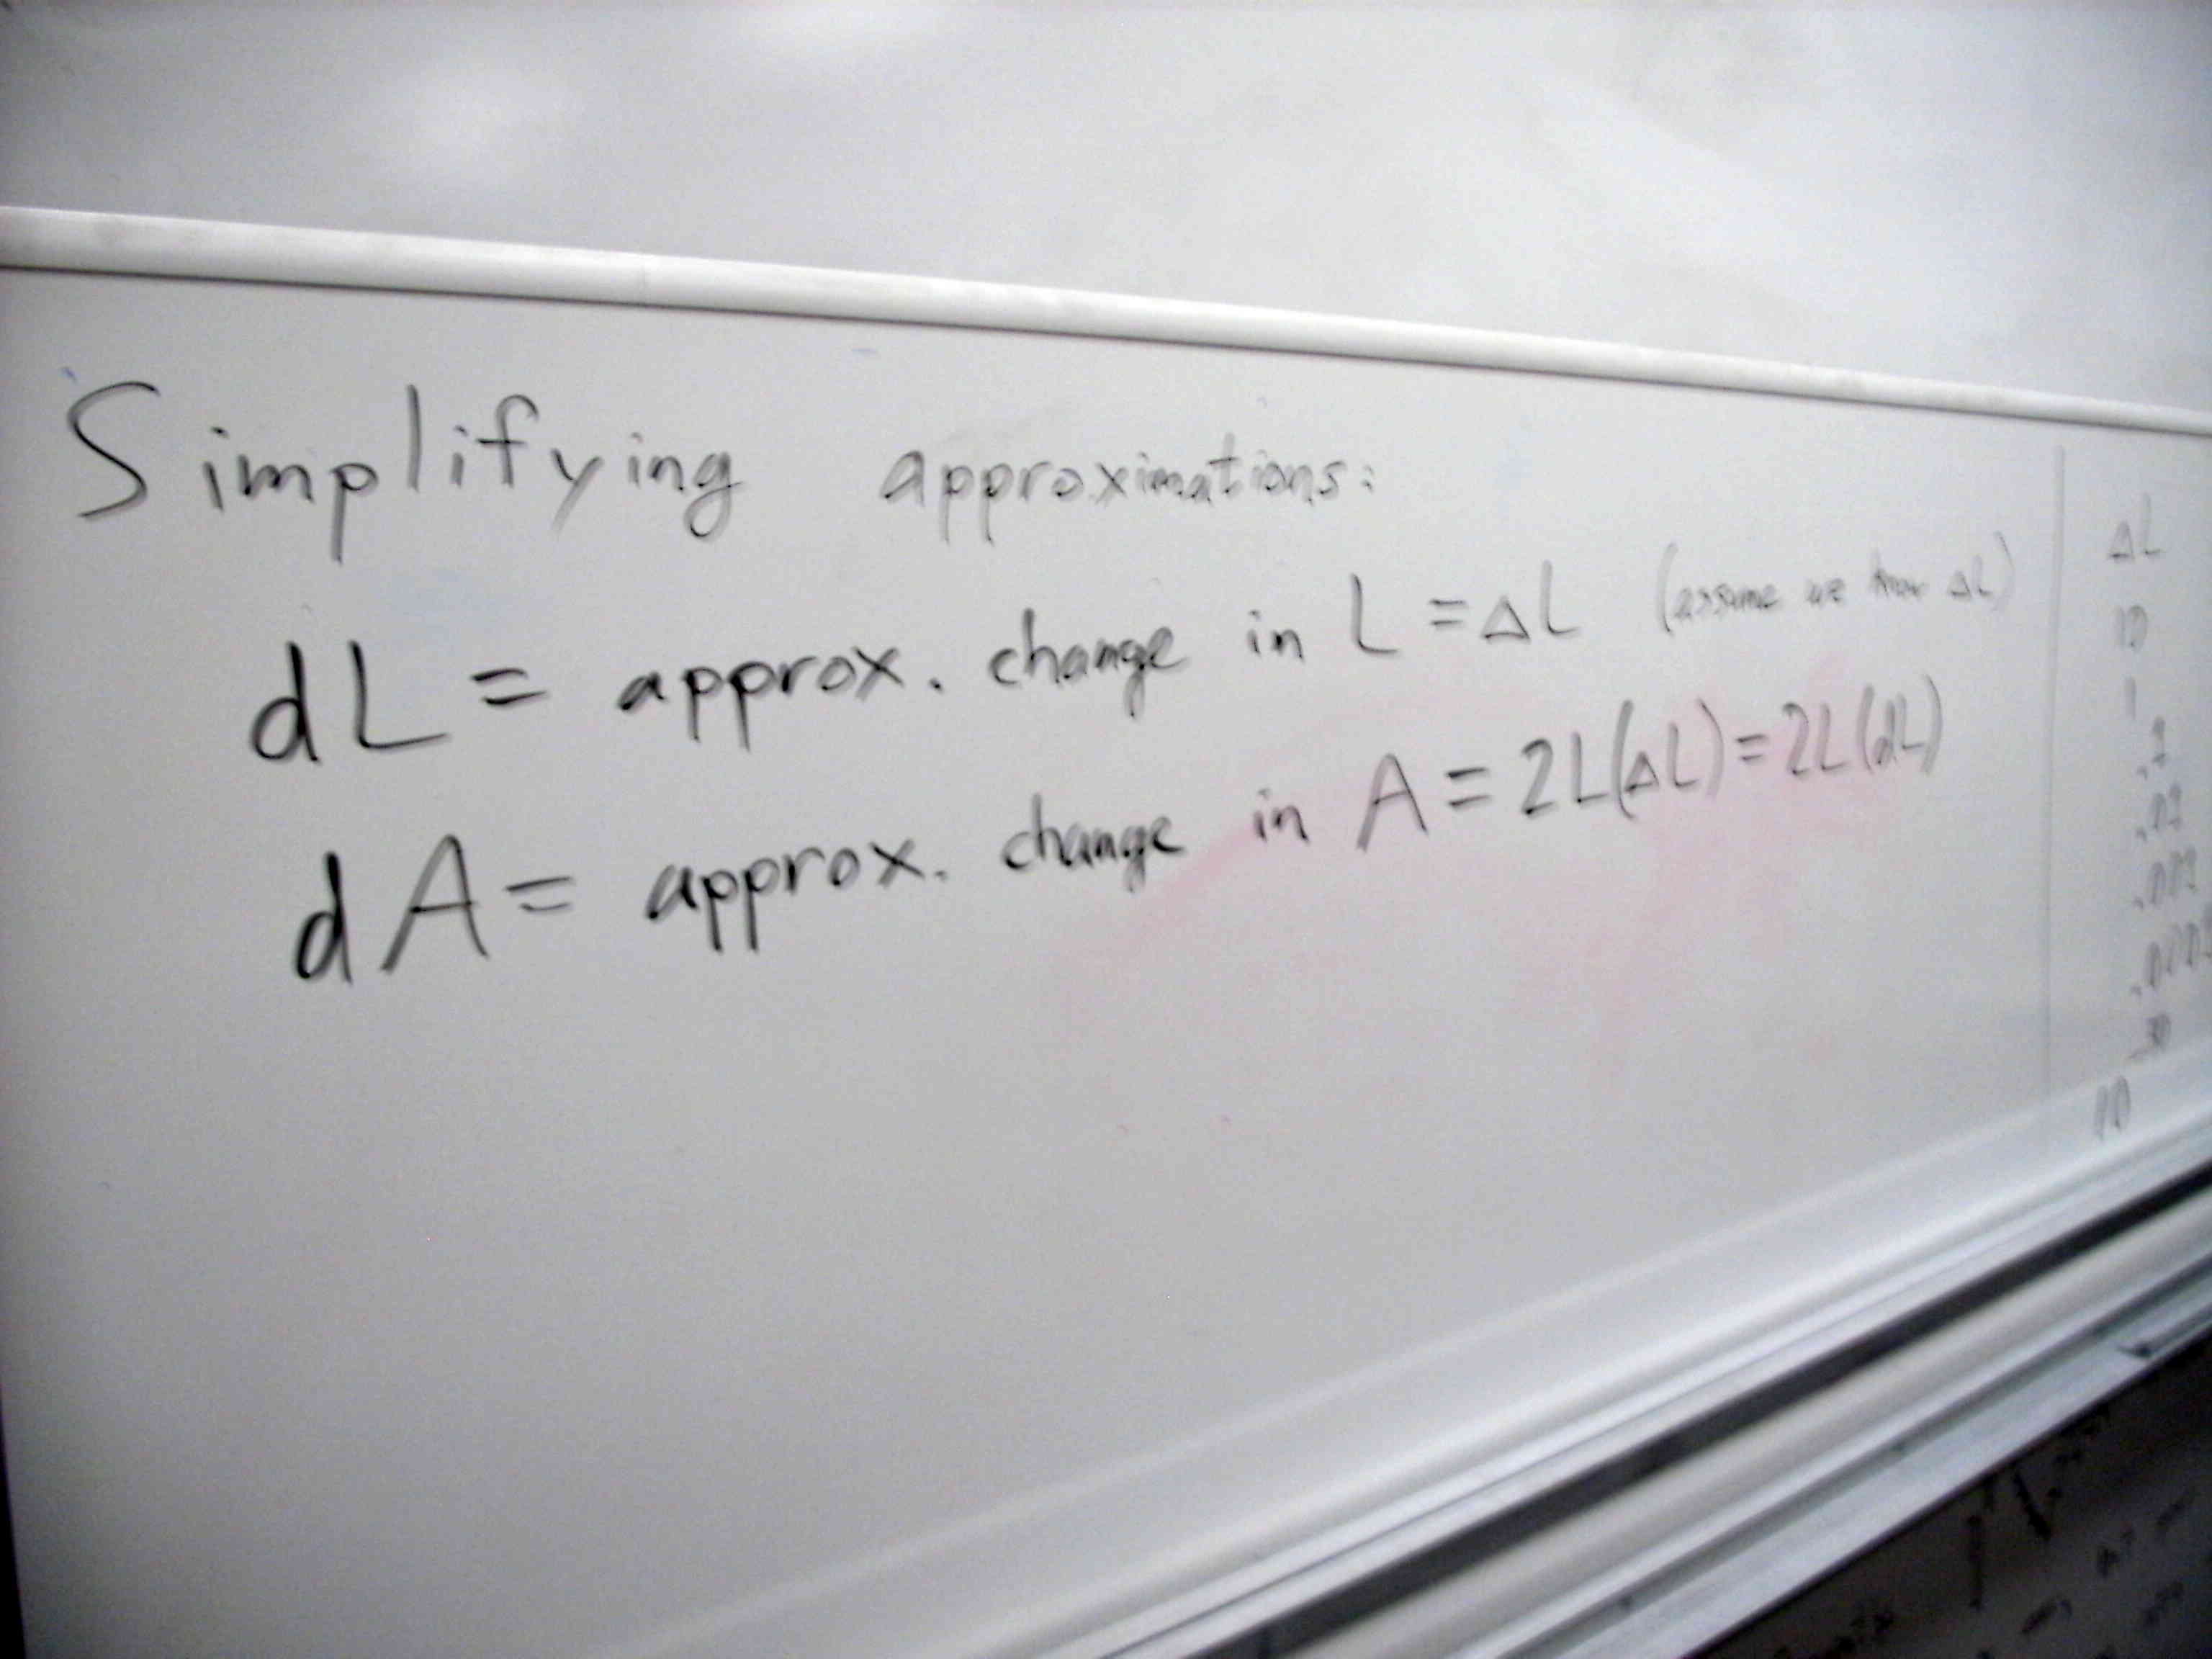 Simplifying approximations:
dL = approx. change in L = ΔL (assume we know ΔL)
dA = approx. change in A = 2L(ΔL) = 2L(dL)
ΔL
10
1
.1
.01
.001